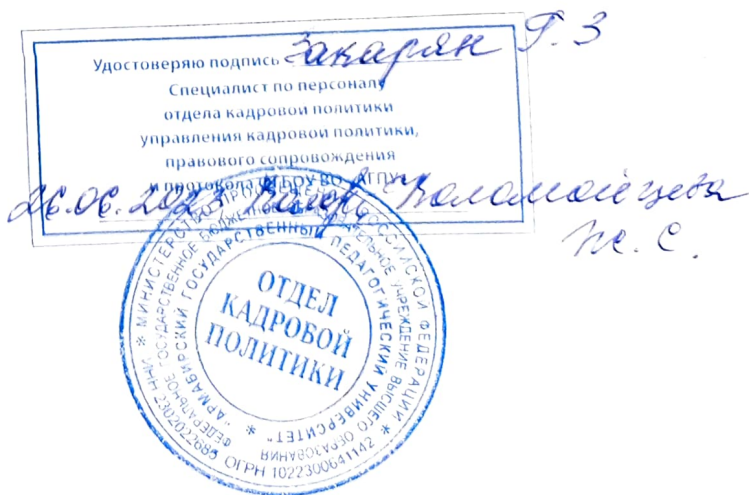 Удостоверяю подпись Закарян Г. З
Специалист по персоналу
отдела кадровой политики
управления кадровой политики,
правового сопровождения
и протокола ФГБОУ ВО «АГПУ»
26.06.2023 Коломойцева
Ж. С.
* МИНИСТЕРСТВО ПРОСВЕЩЕНИЯ РОССИЙСКОЙ ФЕДЕРАЦИИ *
ФЕДЕРАЛЬНОЕ ГОСУДАРСТВЕННОЕ БЮДЖЕТНОЕ ОБРАЗОВАТЕЛЬНОЕ УЧРЕЖДЕНИЕ ВЫСШЕГО ОБРАЗОВАНИЯ
"АРМАВИРСКИЙ ГОСУДАРСТВЕННЫЙ ПЕДАГОГИЧЕСКИЙ УНИВЕРСИТЕТ" *
ИНН 2302022685 ОГРН 1022300641142
ОТДЕЛ
КАДРОВОЙ
ПОЛИТИКИ